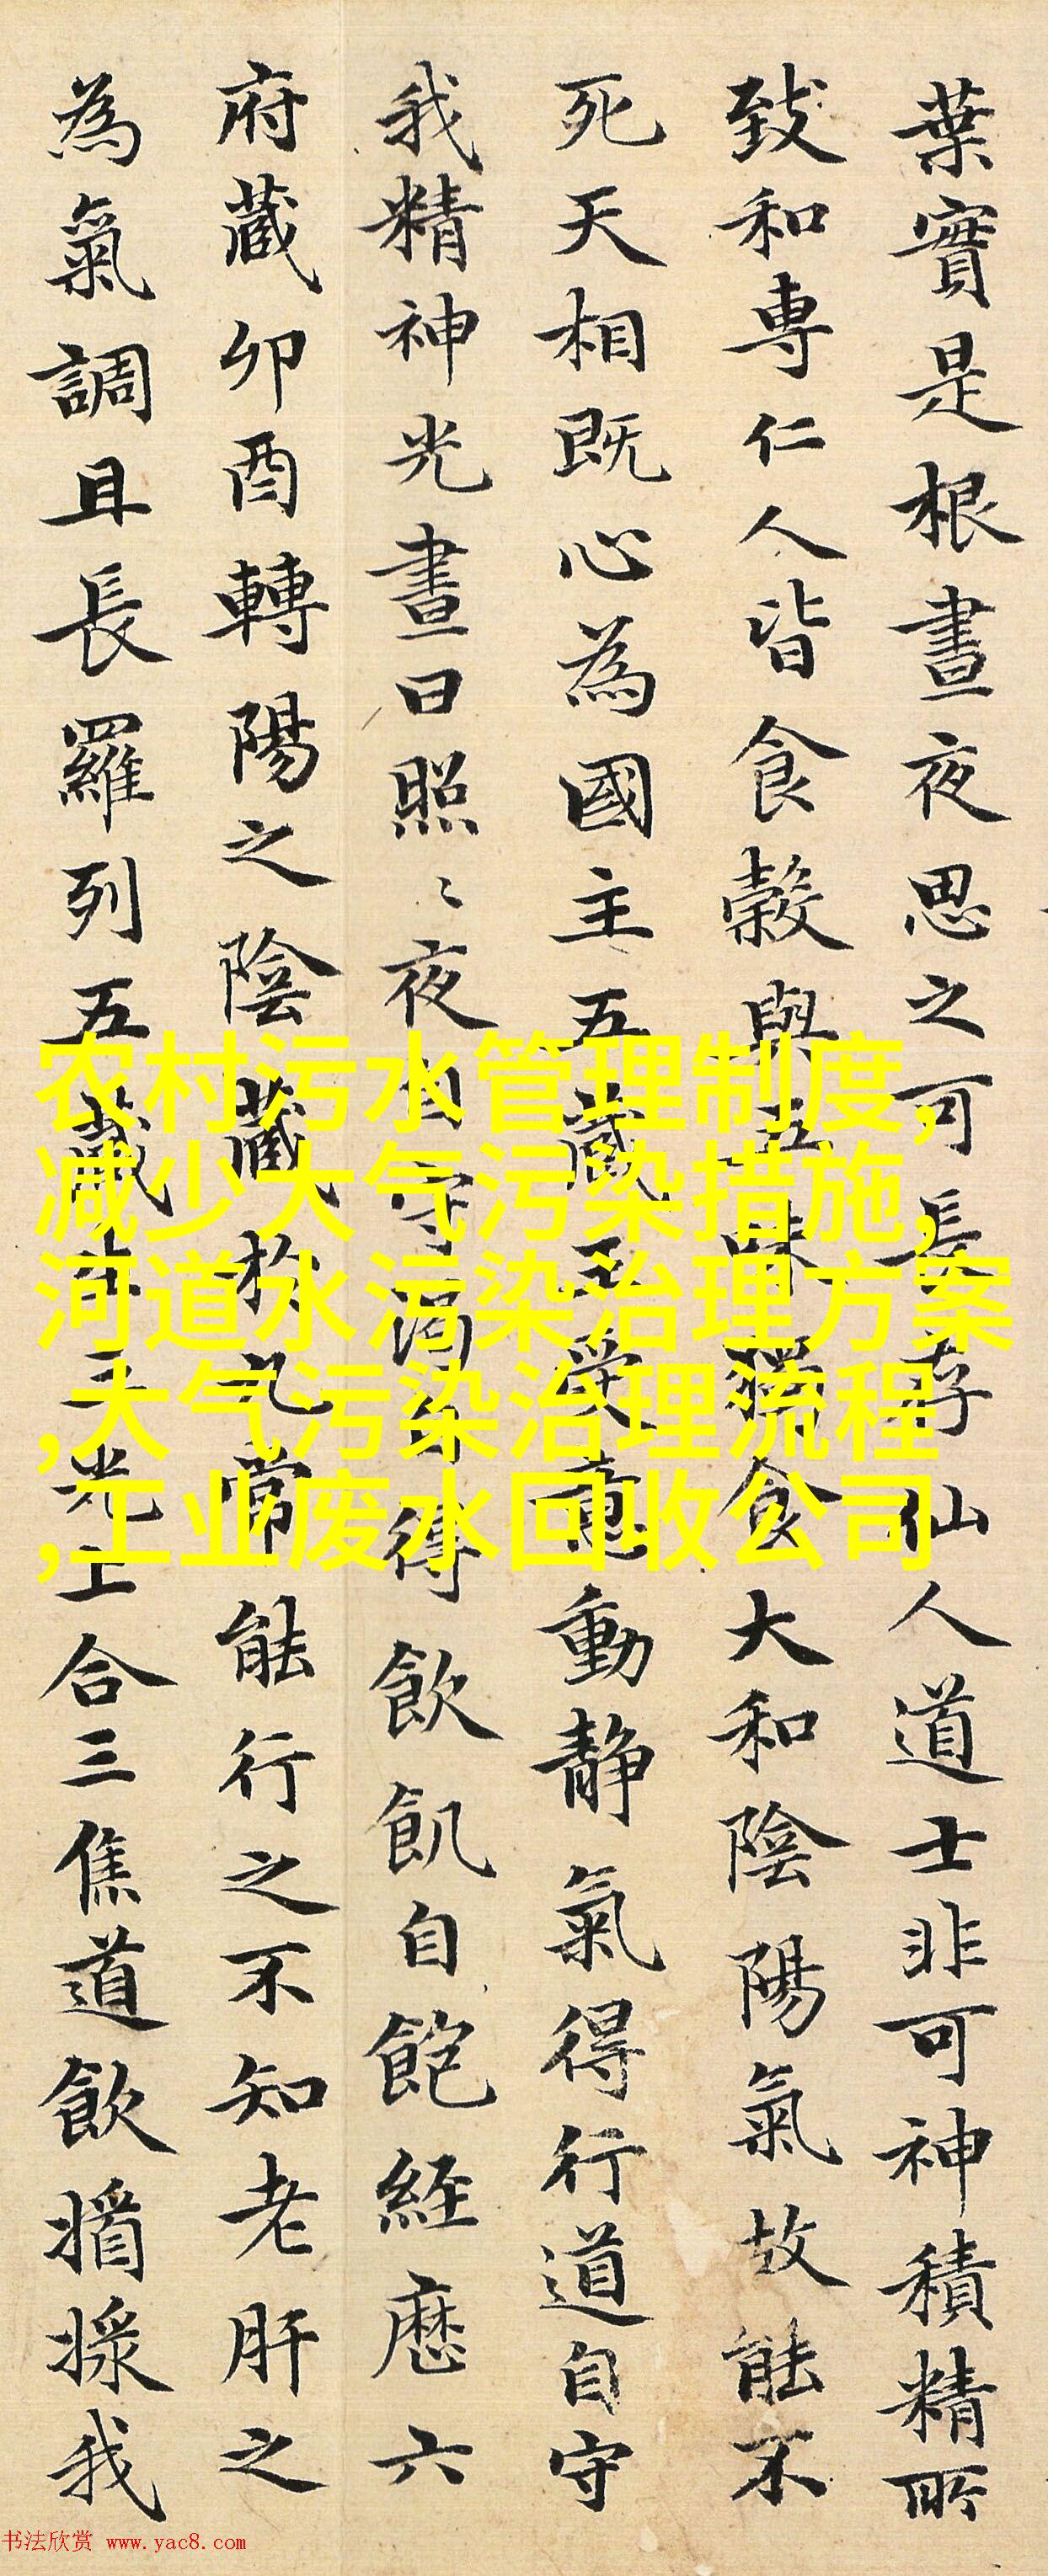 葉實是根晝夜思之可長存仙人道士非可神積精所
致和專仁人皆食穀與五味獨食大和陰陽氣故能不
死天相既心為國主五藏王受意動静氣得行道自守
我精神光晝日照〻夜自守渴自得飲飢自飽経歷六
府藏卯酉轉陽之陰藏於九常能行之不知老肝之
為氣調且長羅列五藏主三光上合三焦道飲
我
农村污水管理制度,
减少大气污染措施,
河道水污染治理方案
,大气污染治理流程
,工业废水回收公司
书法欣赏 www.yac8.com